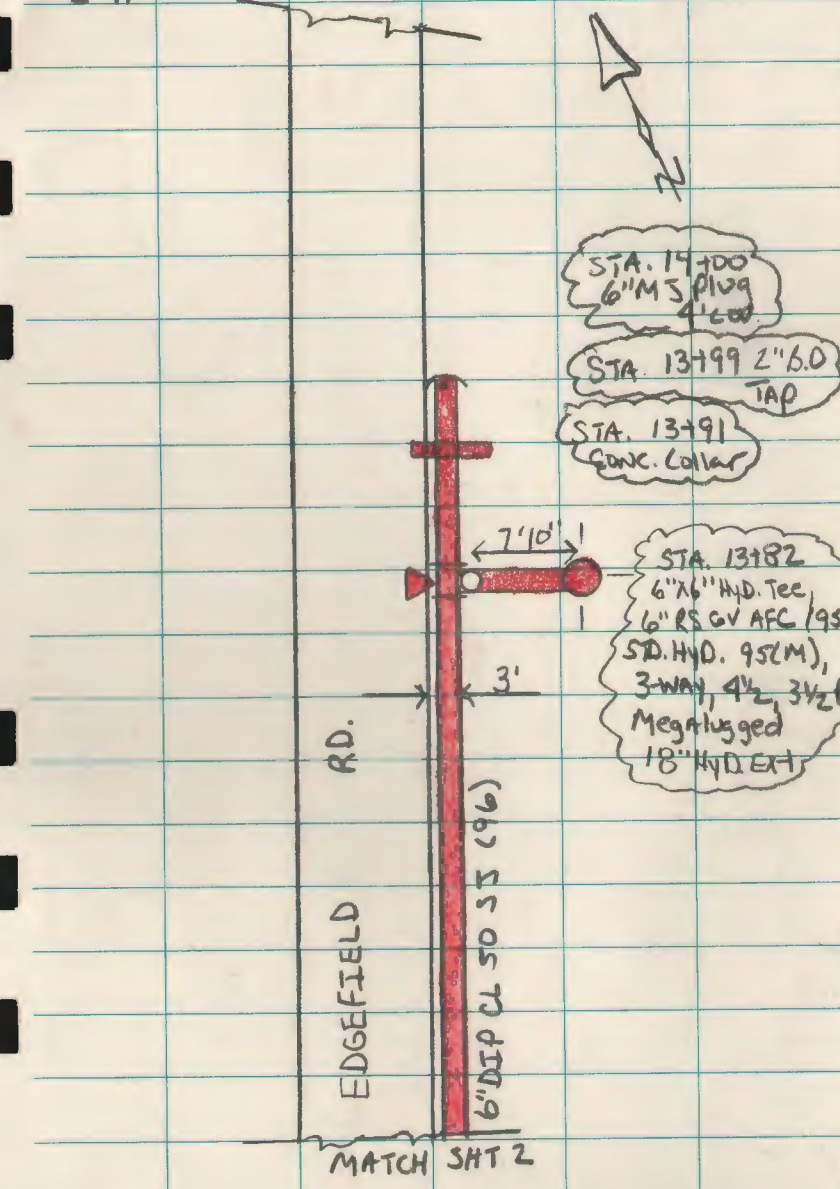 N
STA. 14+00
6" MJ Plug
STA. 13+99 2" B.O
TAP
STA. 13+91
CONC. Collar
7'10"
STA. 13+82
6"X6" HyD. Tee,
6" RS GV AFC 195
5D. HYD. 95(M),
3-WAY, 4½, 3½
Megalugged
18" HyD. Ext
3'
EDGEFIELD RD.
6" DIP CL 50 SJ (96)
MATCH SHT 2